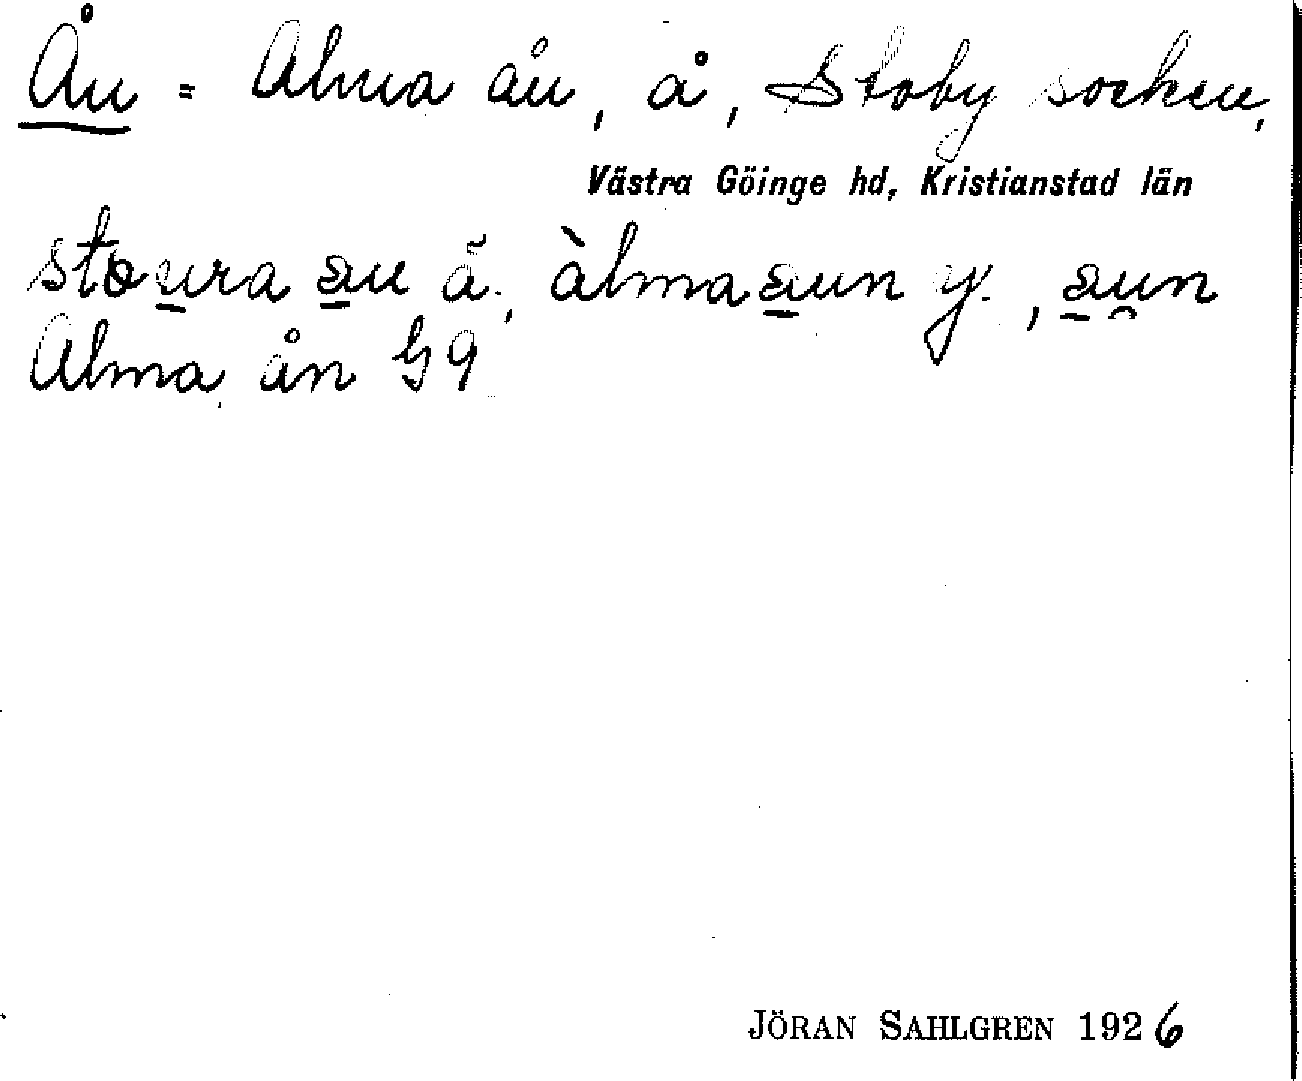 Ån = Alma ån, å, Stoby socken,
Västra Göinge hd, Kristianstad län
stoura au ä., àlmaaun y., aun
Alma ån G9
JÖRAN SAHLGREN 1926